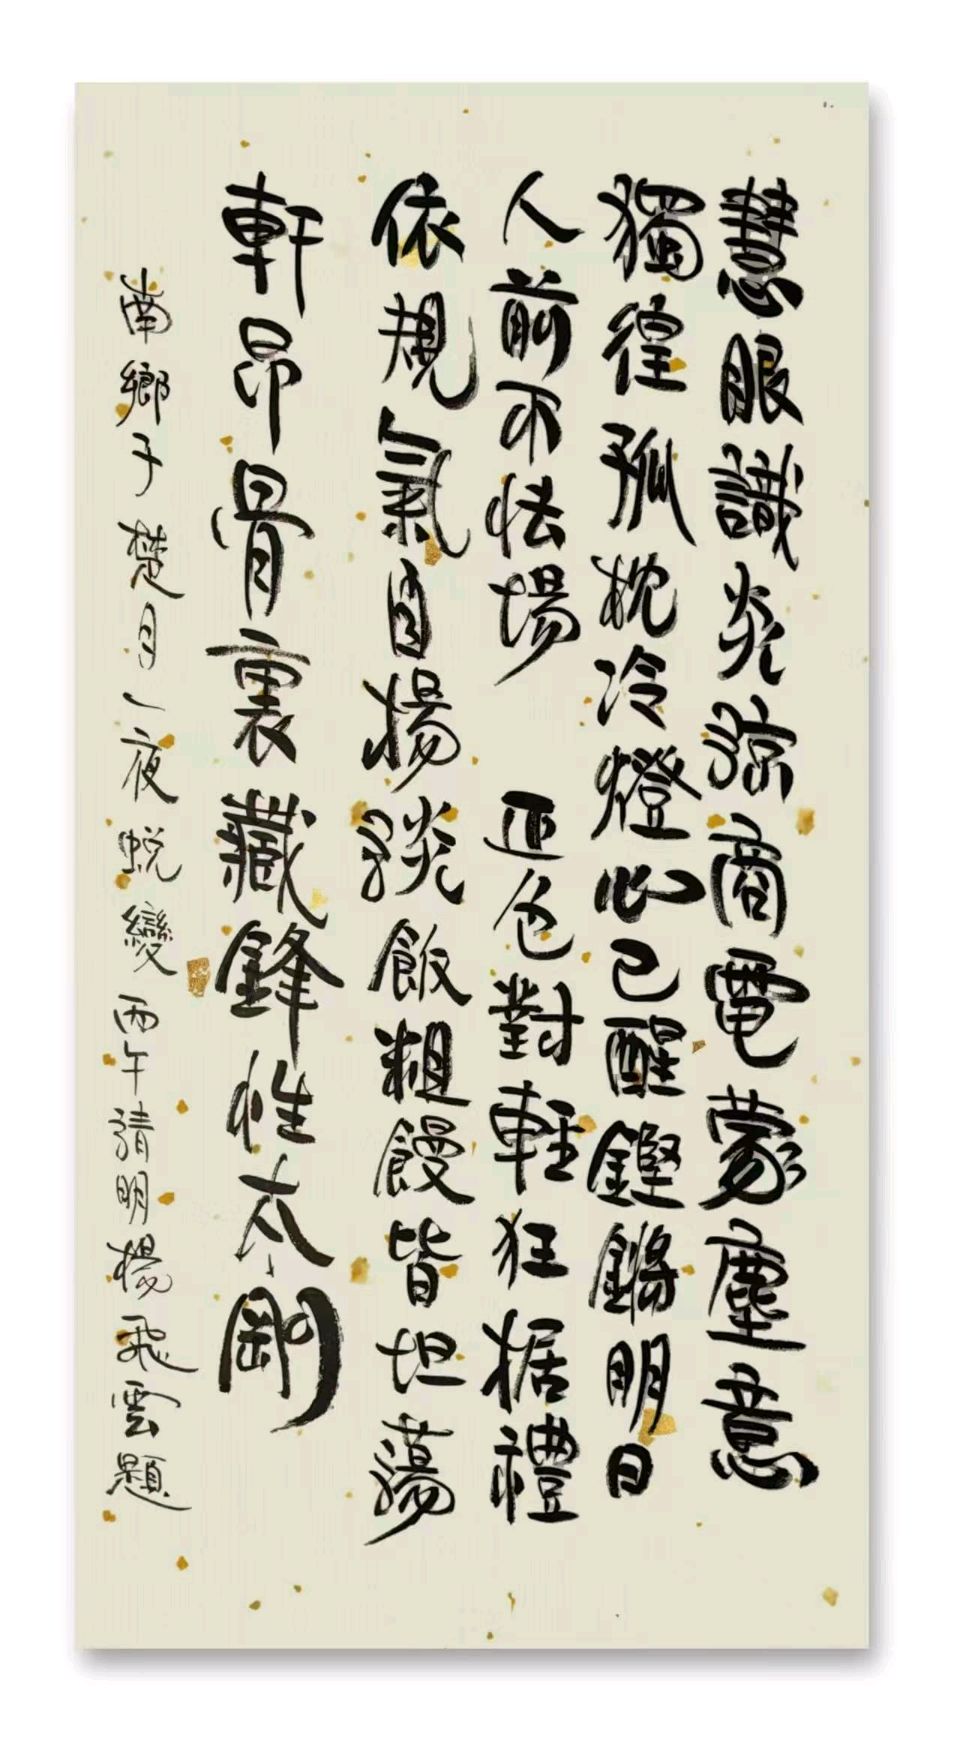 慧眼識炎涼商電蒙塵意
獨徨孤枕冷燈心已醒鏗鏘明日
人前不怯場 正色對輕狂据禮
依規氣自揚淡飯粗饅皆坦蕩
軒昂骨裏藏鋒性太剛
南鄉子楚月一夜蛻變丙午清明楊飛雲題